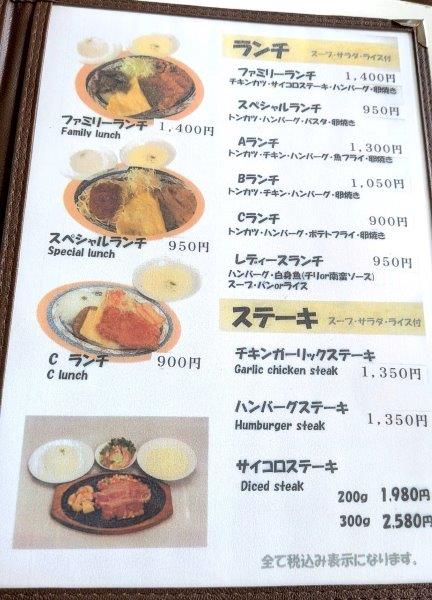 ファミリーランチ
Family lunch
1,400円
スペシャルランチ
Special lunch
950円
C ランチ
C lunch
900円
ランチ スープ・サラダ・ライス付
ファミリーランチ 1,400円
チキンカツ・サイコロステーキ・ハンバーグ・卵焼き
スペシャルランチ 950円
トンカツ・ハンバーグ・パスタ・卵焼き
Aランチ 1,300円
トンカツ・チキン・ハンバーグ・魚フライ・卵焼き
Bランチ 1,050円
トンカツ・チキン・ハンバーグ・卵焼き
Cランチ 900円
トンカツ・ハンバーグ・ポテトフライ・卵焼き
レディースランチ 950円
ハンバーグ・白身魚(チリor南蛮ソース)
スープ・パンorライス
ステーキ スープ・サラダ・ライス付
チキンガーリックステーキ
Garlic chicken steak 1,350円
ハンバーグステーキ
Humburger steak 1,350円
サイコロステーキ
Diced steak
200g 1.980円
300g 2.580円
全て税込み表示になります。